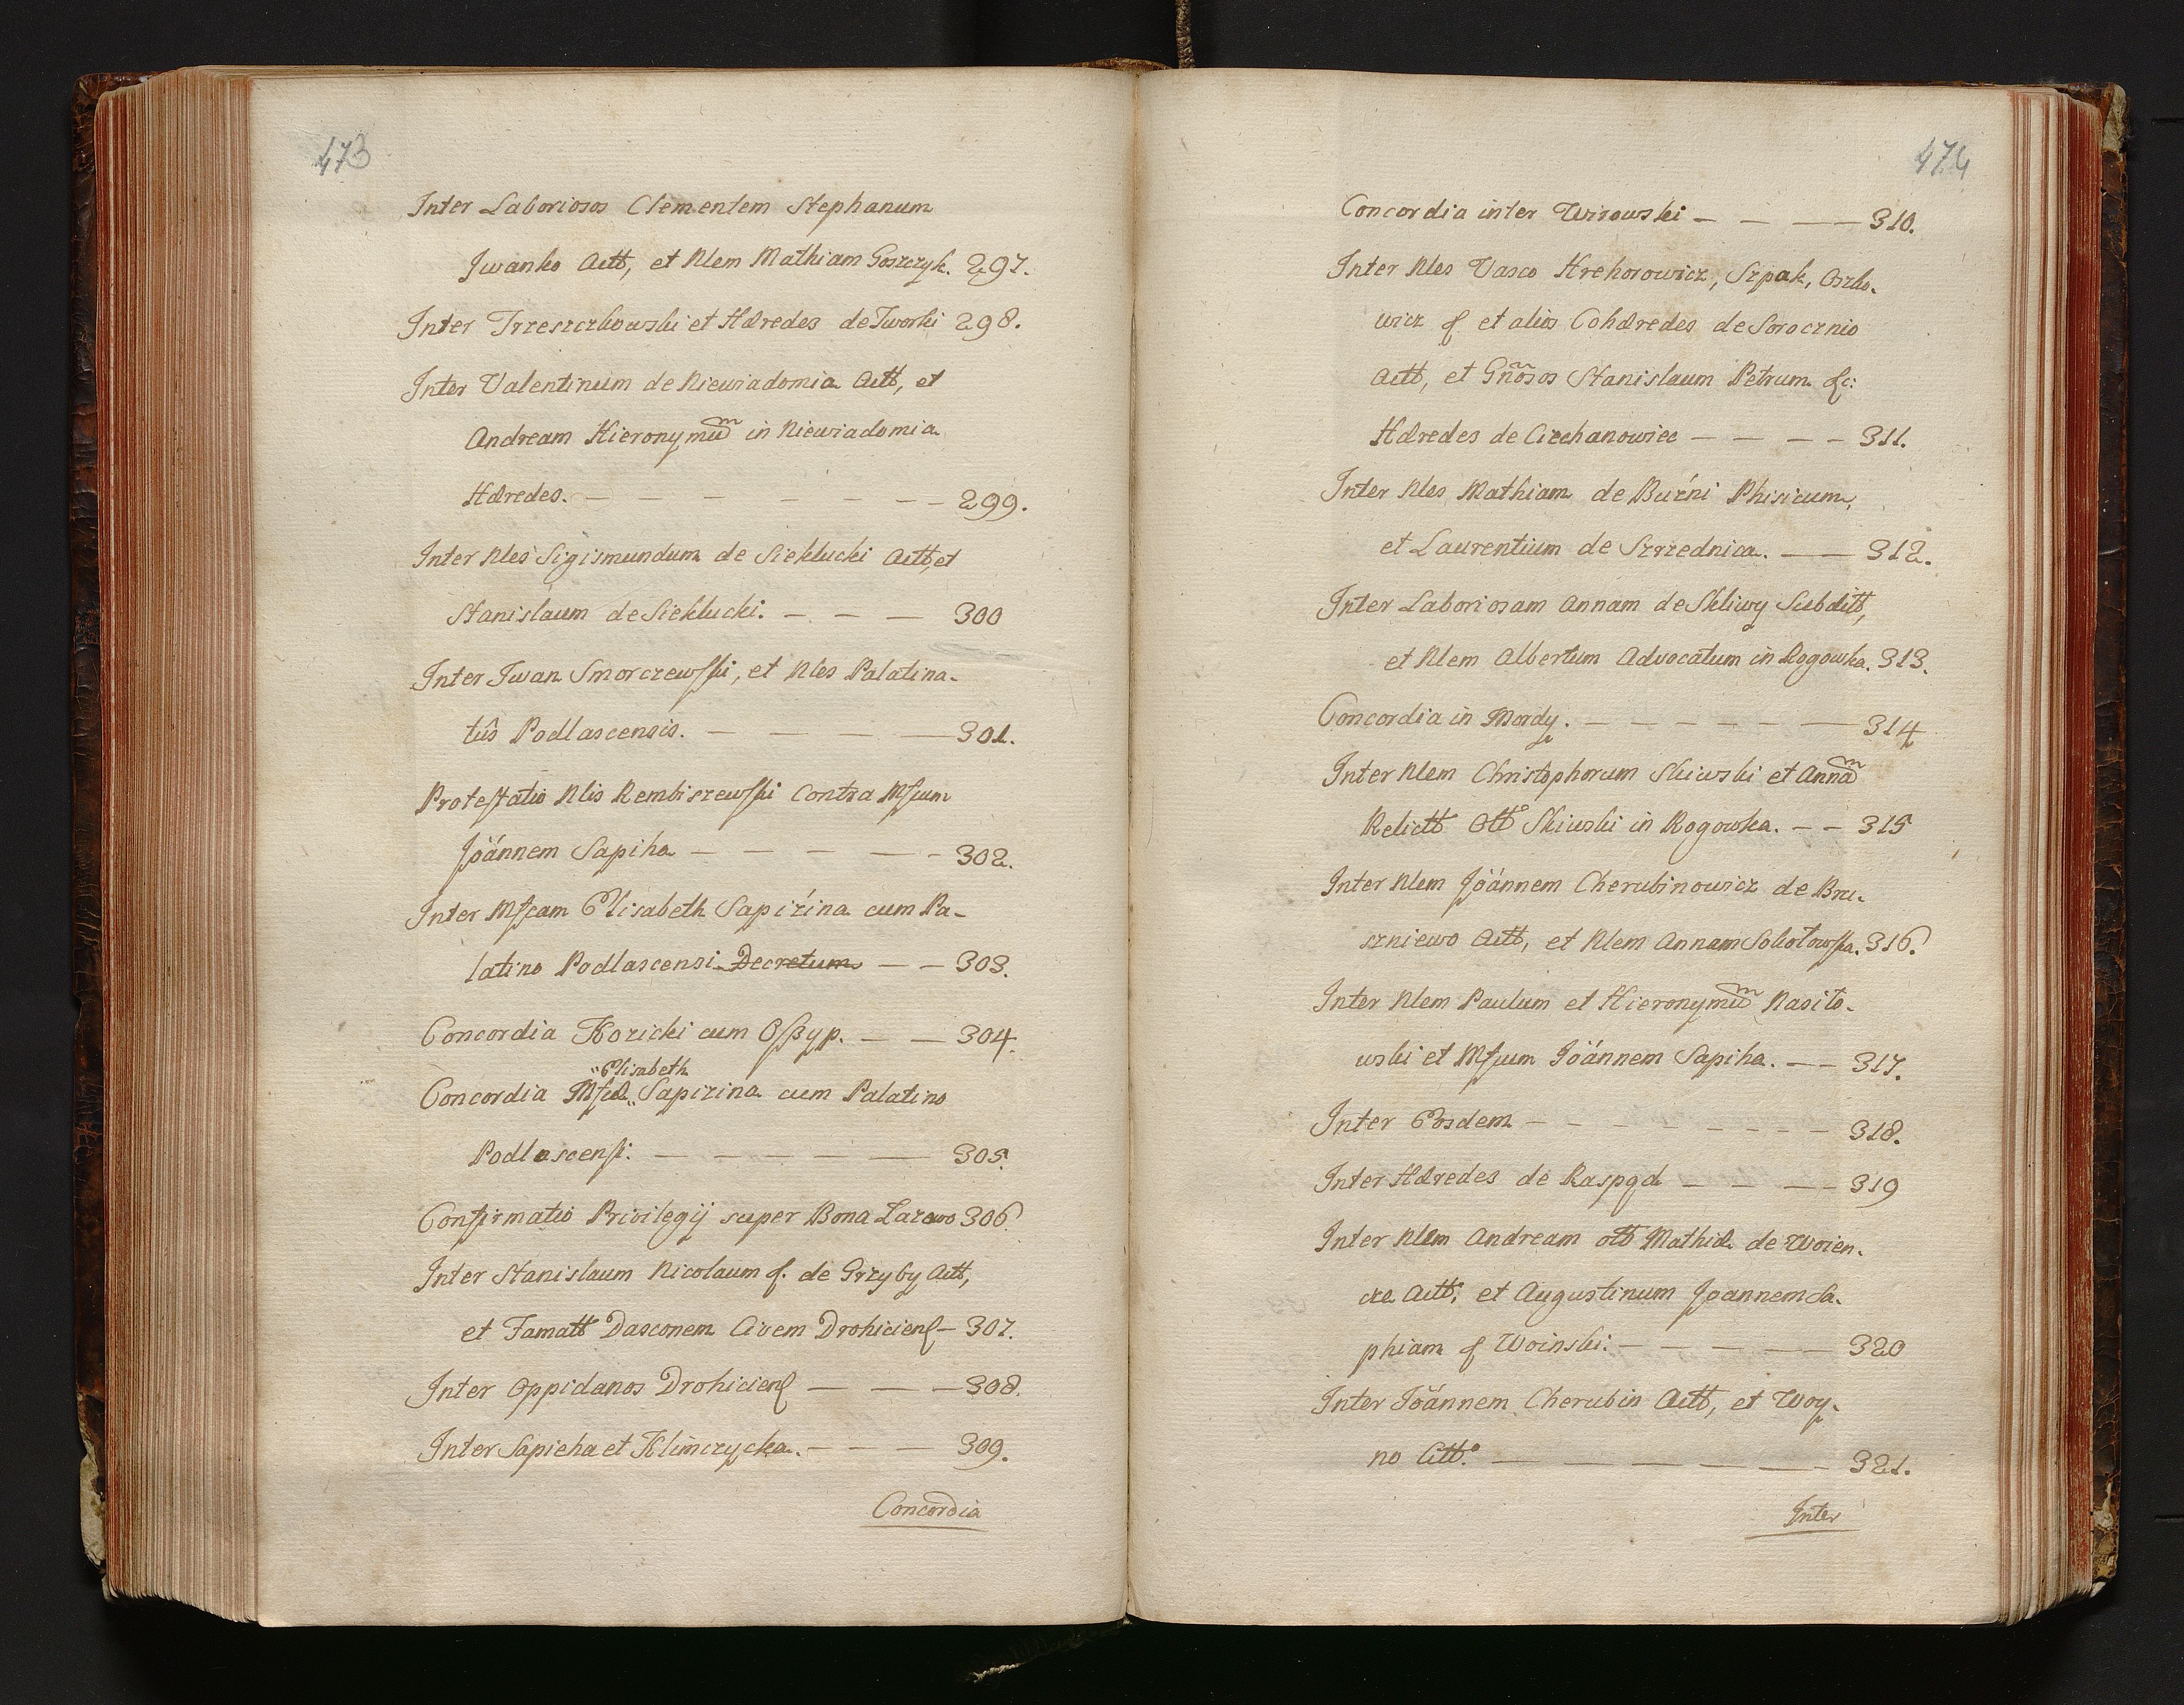 473
Inter Laboriosos Clementem Stephanum
Jwanko Actt, et Nlem Mathiam Goszczyk. 297.
Inter Trzeszczkowski et Hæredes de Tworki 298.
Inter Valentinum de Niewiadomia Actt, et
Andream Hieronymum in Niewiadomia
Hæredes. — — — — — — 299.
Inter Nles Sigismundum de Sieklucki Actt, et
Stanislaum de Sieklucki. — — — 300
Inter Jwan Smorczewski, et Nles Palatina-
tûs Podlascensis. — — — — 301.
Protestatio Nlis Rembiszewski Contra Mfcum
Joánnem Sapiha — — — — — 302.
Inter Mfcam Elisabeth Sapiżina cum Pa-
latino Podlascensi Decretum — — 303.
Concordia Kozicki cum Ossyp. — — 304.
"Elisabeth
Concordia Mfcæ „ Sapizina cum Palatino
Podlascensi. — — — — — 305.
Confirmatio Privilegij super Bona Łazowo 306.
Inter Stanislaum Nicolaum &. de Grzyby Actt,
et Famatt Dasconem Civem Drohiciens — 307.
Inter Oppidanos Drohiciens — — — 308.
Inter Sapieha et Klimczycka. — — — 309.
Concordia
474
Concordia inter Wirowski — — — 310.
Inter Nles Vasco Hrehorowicz, Szpak, Oszko-
wicz & et alios Cohæredes de Sorocznio
Actt, et Gnosos Stanislaum Petrum &c:
Hæredes de Ciechanowiec — — — — 311.
Inter Nles Mathiam de Buźni Phisicum,
et Laurentium de Szrzednica. — — 312.
Inter Laboriosam Annam de Skliwy Subditt,
et Nlem Albertum Advocatum in Rogowka. 313.
Concordia in Mordy. — — — — — — 314
Inter Nlem Christophorum Skiwski et Annam
Relictt Ottº Skiwski in Rogowka. — — 315
Inter Nlem Joánnem Cherubinowicz de Bru-
szniewo Actt, et Nlem Annam Sokołowska. 316.
Inter Nlem Paulum et Hieronymum Nasiło-
wski et Mfcum Joánnem Sapiha. — — 317.
Inter Eosdem — — — — — — — — 318.
Inter Hæredes de Raspąd — — — — 319
Inter Nlem Andream ott Mathiæ de Woien-
ce Actt, et Augustinum Joannem Sa-
phiam & Woinski: — — — — — 320
Inter Joánnem Cherubin Actt, et Woy-
no Citt.º — — — — — — 321.
Inter